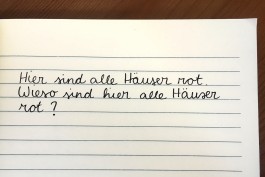 Hier sind alle Häuser rot.
Wieso sind hier alle Häuser
rot?